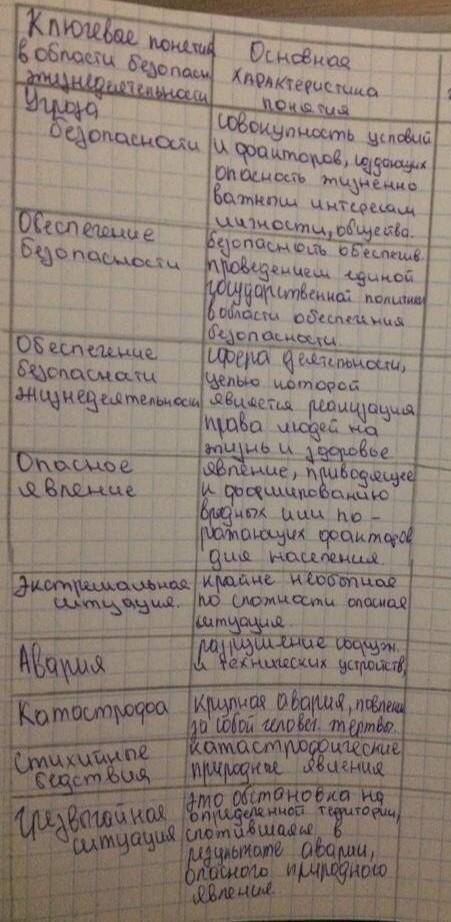 Ключевые понятия
в области безопасн
жизнедеятельности
Основная
характеристика
понятия
Угроза
безопасности
совокупность условий
и факторов, создающих
опасность жизненно
важным интересам
личности, общества.
Обеспечение
безопасности
безопасность обеспечив.
проведением единой
государственной политики
в области обеспечения
безопасности.
Обеспечение
безопасности
жизнедеятельности
сфера деятельности,
целью которой
является реализация
права людей на
жизнь и здоровье
Опасное
явление
явление, приводящее
к формированию
вредных или по-
ражающих факторов
для населения.
Экстремальная
ситуация.
крайне необычная
по сложности опасная
ситуация.
Авария
разрушение сооруж.
и технических устройств,
Катастрофа
крупная авария, повлекш
за собой человеч. жертвы.
Стихийные
бедствия
катастрофические
природные явления
Чрезвычайная
ситуация
это обстановка на
определенной территории,
сложившаяся в
результате аварии,
опасного природного
явления